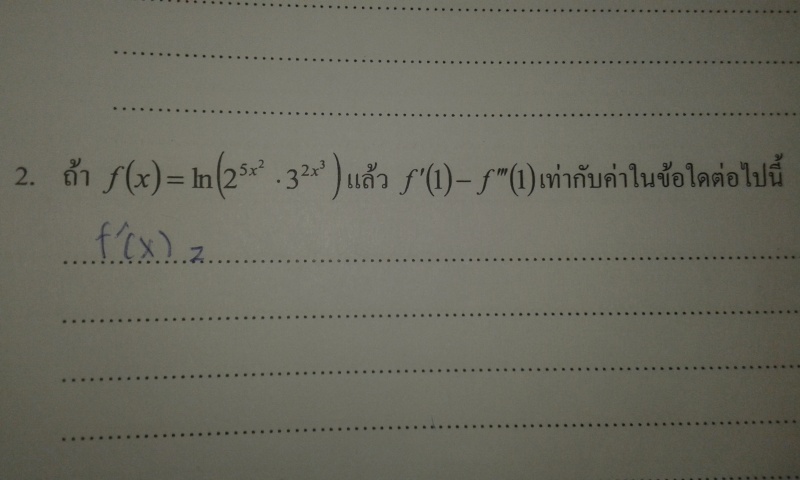 2. ถ้า f(x) = ln(2^{5x^2} · 3^{2x^3}) แล้ว f′(1) − f‴(1) เท่ากับค่าในข้อใดต่อไปนี้
f′(x) =